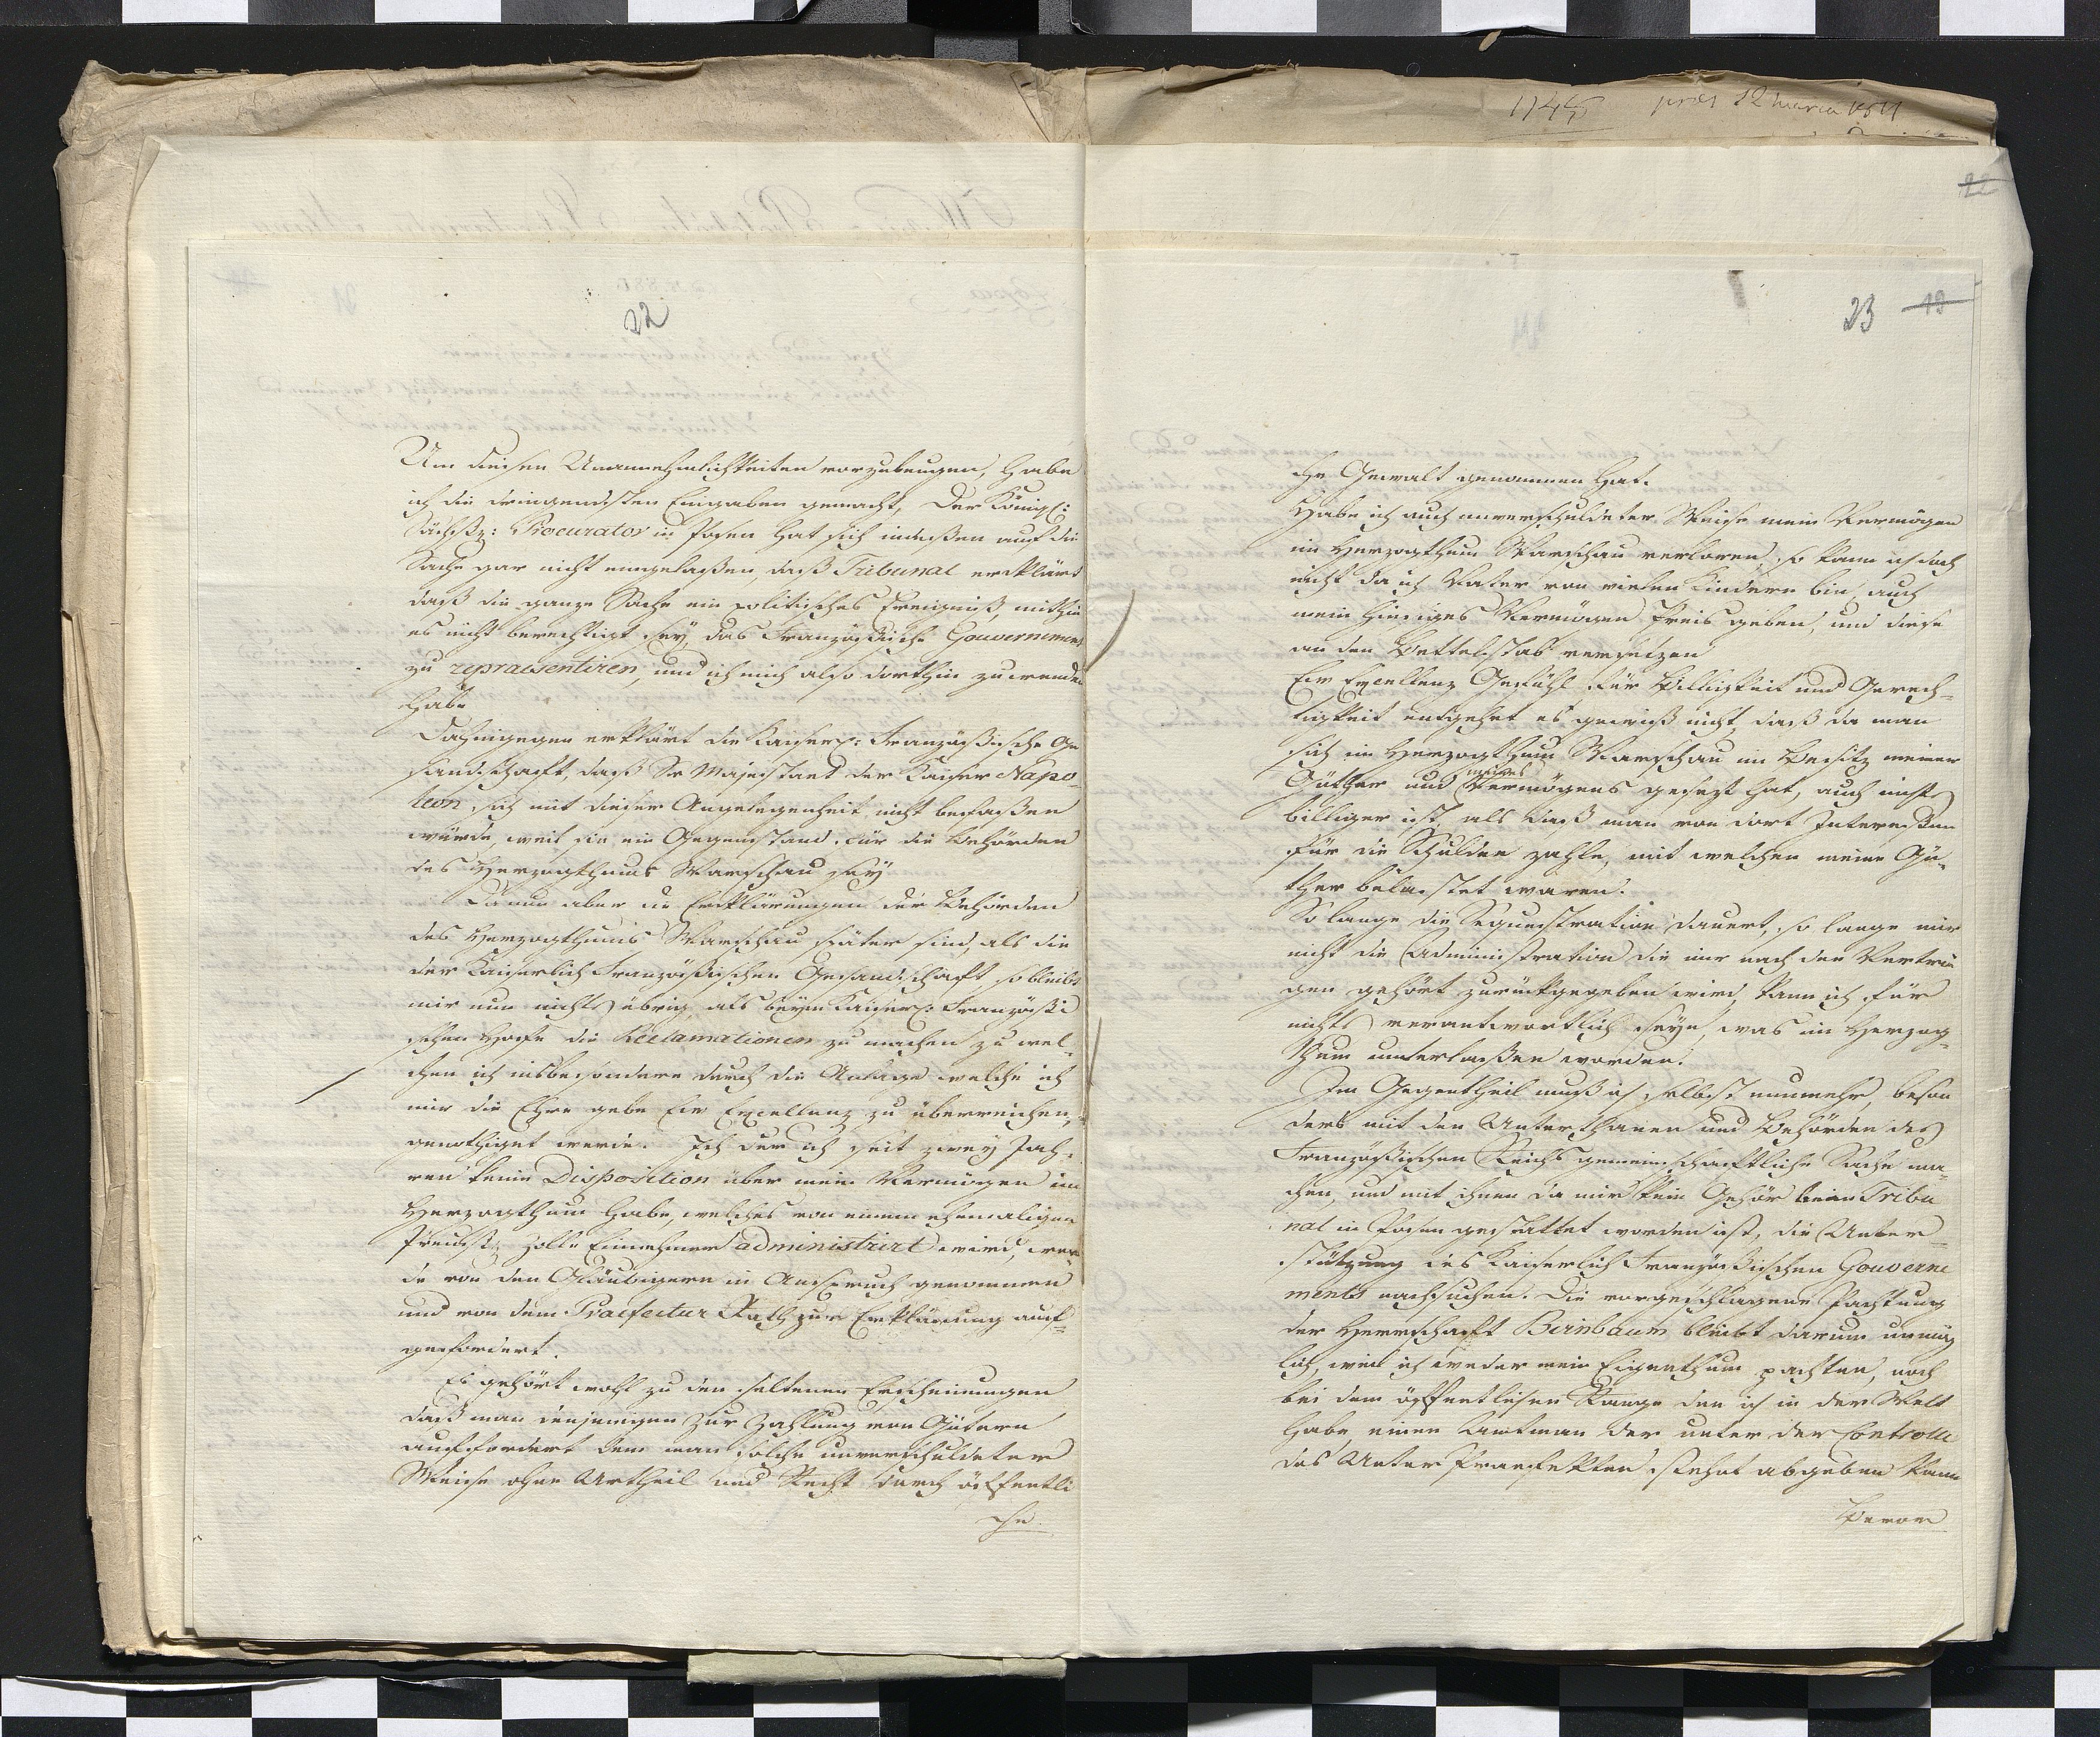 1745 praes 12 marca 1811
22
22
Um diesen Unannehmlichkeiten vorzubeugen, habe
ich die dringendsten Eingaben gemacht, Der Königl:
Sächß: Procurator in Posen hat sich indeßen auf die
Sache gar nicht eingelaßen, daß Tribunal erklärt
daß die ganze Sache ein politisches Ereigniß, mithin
es nicht berechtigt sey, das Französische Gouvernement
zu repraesentiren, und ich mich also dorthin zu wenden
habe
Dahingegen erklärt die Kaiserl: Französische Ge
sandschaft, daß Sr Majestaet der Kaiser Napo
leon, sich mit dieser Angelegenheit nicht befaßen
würde, weil sie ein Gegenstand für die Behörden
des Herzogthums Warschau sey
Da nun aber die Erklärungen der Behörden
des Herzogthums Warschau später sind, als die
der Kaiserlich Französischen Gesandschaft so bleibt
mir nun nichts übrig als beym Kaiserl: Französi
schen Hofe die Reclamationen zu machen zu wel¬
chen ich insbesondere durch die Anlage welche ich
mir die Ehre gebe Ew Excellenz zu überreichen,
genöthiget werde. Ich der ich seit zwey Jah¬
ren keine Disposition über mein Vermögen im
Herzogthum habe, welches von einem ehemaligen
Preuß: Zoll Einnehmer administrirt wird, wer
de von den Gläubigern in Anspruch genommen
und von dem Praefectur Rath zur Erklärung auf¬
gefordert.
Es gehört wohl zu den seltenen Erscheinungen
daß man denjenigen zur Zahlung von Gütern
auffordert dem man solche unverschuldeter
Weise ohne Urtheil und Recht durch öffentli
che
23 19
che Gewalt genommen hat.
Habe ich auch unverschuldeter Weise mein Vermögen
im Herzogthum Warschau verloren, so kann ich doch
nicht da ich Vater von vielen Kindern bin, auch
mein hiesiges Vermögen Preis geben, und diese
an den Bettelstab versetzen
Ew Excellenz Gefühl für Billigkeit und Gerech¬
tigkeit entgehet es gewiß nicht, daß da man
sich im Herzogthum Warschau in Besitz meiner
Güther und meines Vermögens gesezt hat, auch nichts
billiger ist, als daß man von dort Intereßen
für die Schulden zahle, mit welchen meine Gü¬
ther belastet waren.
So lange die Sequestration dauert, so lange mir
nicht die Administration die mir nach den Verträ
gen gehört zurückgegeben wird, kann ich für
nichts verantwortlich seyn, was im Herzog¬
thum unterlaßen worden.
Im Gegentheil muß ich selbst nunmehr, beson
ders mit den Unterthanen und Behörden des
Französischen Reichs gemeinschaftliche Sache ma¬
chen, und mit ihnen da mir kein Gehör beim Tribu
nal in Posen gestattet worden ist, die Unter¬
stützung des Kaiserlich Französischen Gouverne
ments nachsuchen. Die vorgeschlagene Pachtung
der Herrschaft Birnbaum bleibt darum unmög
lich, weil ich weder mein Eigenthum pachten, noch
bei dem öffentlichen Range den ich in der Welt
habe, einen Amtman der unter der Controlle
des Unter Praefekten stehet abgeben kann
Bevor